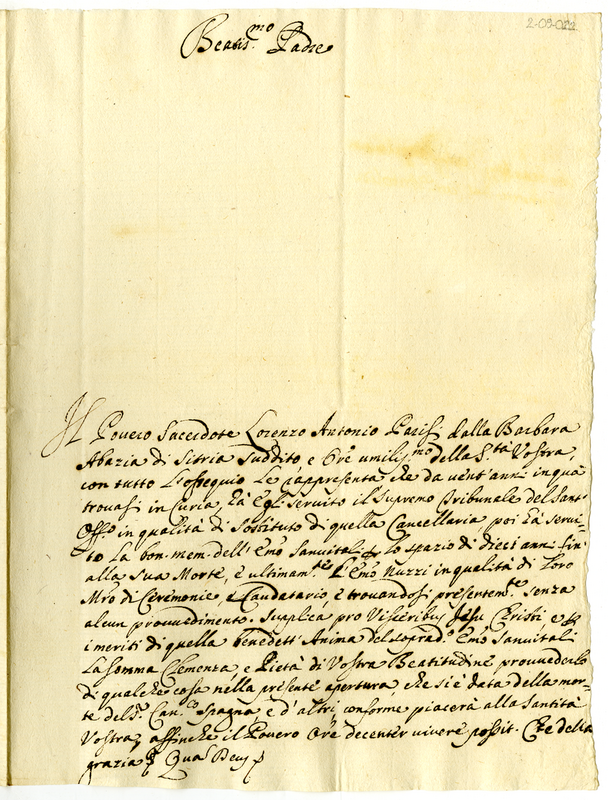 2-09-022
Beatis.mo Padre
Il Povero Sacerdote Lorenzo Antonio Parisi dalla Barbara
Abazia di Sitria suddito, e Ore umilis.mo della S.tà Vostra,
con tutto l'ossequio Le rappresenta che da vent'anni in quà
trovasi in Curia, hà egli servito il Supremo Tribunale del Sant'
Offo in qualità di Sostituto di quella Cancellaria, poi hà servi-
to La bon. mem. dell'Emo Sanvitali p lo spazio di dieci anni fin'
alla Sua Morte, e ultimam.te l'Emo Nuzzi in qualità di Loro
Mro di Ceremonie, e Caudatario, e trovandosi presentem.te senza
alcun provvedimento. Supplica pro Visceribus Jesu Christi e p
i meriti di quella benedett'Anima del soprad.o Emo Sanvitali
La somma Clemenza, e Pietà di Vostra Beatitudine provvederlo
di qualche cosa nella presente apertura, che si è data della mor-
te del S.r Can.co Spagna e d'altri, conforme piacerà alla Santità
Vostra, affinche il Povero Ore decenter vivere possit. Che della
grazia Qua Deus